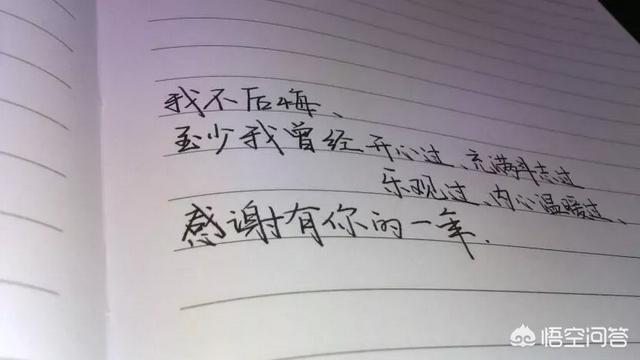 我不后悔、
至少我曾经开心过、充满斗志过
乐观过、内心温暖过、
感谢有你的一年.
悟空问答